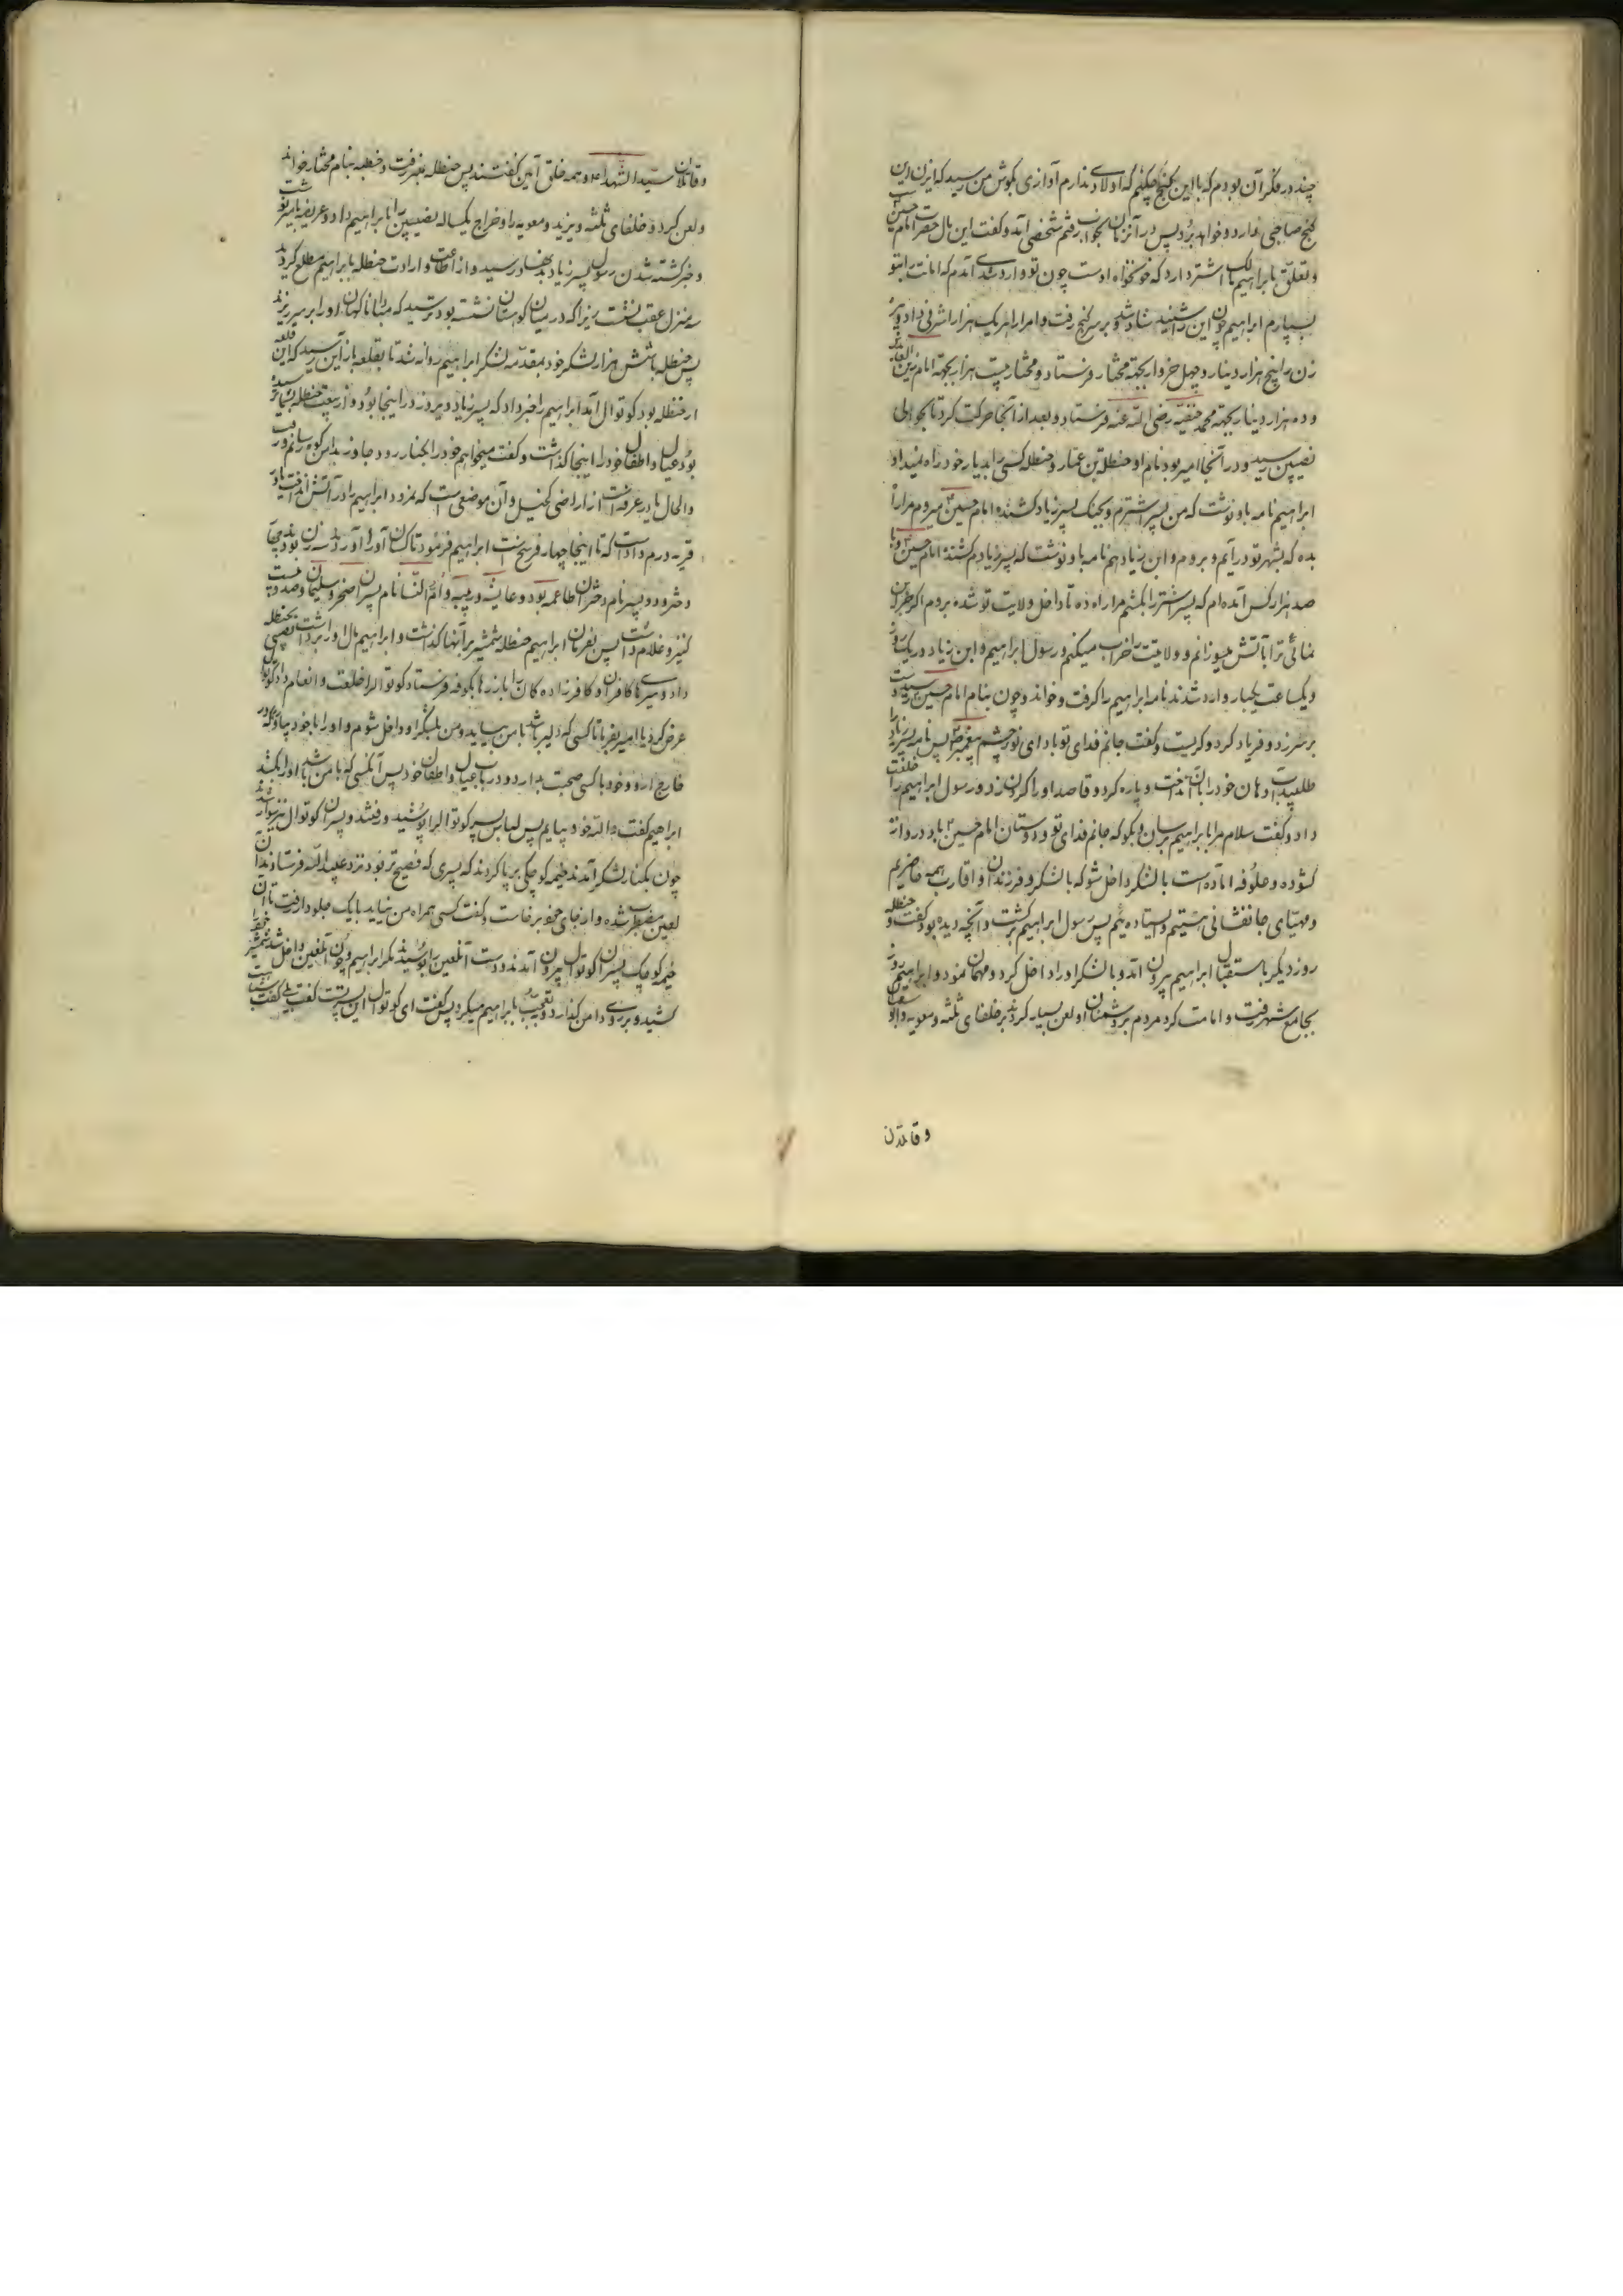 چند در فکر آن بودم که با این گنج چکنم که اولادی ندارم آوازی بگوش من رسید که ایزن این
گنج صاحبی دارد و خواهد برد پس در آنزمان بخواب رفتم شخصی آمد و گفت این مال حضرت امام حسین
و تعلق بابراهیم مالک اشتر دارد که خونخواه اوست چون تو وارد شدی آمدم که امانت را بتو
بسپارم ابراهیم چون این را شنید شاد شد و بر سر گنج رفت و امرا را هر یک هزار اشرفی داد و پیر
زن را پنج هزار دینار و چهل خروار بجهة مختار فرستاد و مختار بیست هزار بجهة امام زین العابدین
و ده هزار دینار بجهة محمد حنفیه رضی الله عنه فرستاد و بعد از آنجا حرکت کرد تا بحوالی
نصیبین رسید و در آنجا امیر بود نام او حنظلة بن عمار و حنظله کسی را بدیار خود راه نمیداد
ابراهیم نامه باو نوشت که من پسر اشترم و بجنک پسر زیاد کشنده امام حسین میروم مرا راه
بده که بشهر تو در آیم و بروم و ابن زیاد هم نامه باو نوشت که پسر زیادم کشنده امام حسین و با
صد هزار کس آمده ام که پسر اشتر را بکشم مرا راه ده تا داخل ولایت تو شده بروم اگر جز این
نمائی ترا بآتش میسوزانم و ولایتت خراب میکنم و رسول ابراهیم و ابن زیاد در یک روز
و یکساعت بیکبار وارد شدند نامه ابراهیم را گرفت و خواند و چون بنام امام حسین رسید دست
بر سر زد و فریاد کرد و گریست و گفت جانم فدای تو باد ای نور چشم پیغمبر پس نامه پسر زیاد را
طلبید آب دهان خود را بآن انداخت و پاره کرد و قاصد او را گردن زد و رسول ابراهیم را خلعت
داد و گفت سلام مرا بابراهیم برسان و بگو که جانم فدای تو و دوستان امام حسین باد دروازه
گشوده و علوفه آماده است با لشکر داخل شو که با لشکر و فرزندان و اقارب همه حاضریم
و مهیای جانفشانی هستیم و ایستاده ئیم پس رسول ابراهیم برگشت و آنچه دیده بود گفت و حنظله
روز دیگر باستقبال ابراهیم بیرون آمد و با لشکر او را داخل کرد و مهمان نمود و ابراهیم روز
بجامع شهر رفت و امامت کرد مردم بر دشمنان او لعن بسیار کردند بر خلفای ثلثه و معویه و
و قاتلان
و قاتلان سید الشهدا و همه خلق آمین گفتند پس حنظله بمنبر رفت و خطبه بنام مختار خواند
و لعن کرد و خلفای ثلثه و یزید و معویه را و خراج یکساله نصیبین را بابراهیم داد و عریضه بامیر نوشت
و خبر کشته شدن رسول پسر زیاد بدو رسید و از اطاعت و ارادت حنظله بابراهیم مطلع گردید
سه منزل عقب نشست زیرا که در میان کوهستان نشسته بود ترسید که مبادا ناگهان او را بر سر ریزند
پس حنظله با شش هزار لشکر خود بمقدمه لشکر ابراهیم روانه شد تا بقلعه رسید که این قلعه
از حنظله بود کوتوال آمد ابراهیم را خبر داد که پسر زیاد دیروز در اینجا بود و از بیعت حنظله بشما
بود عیال و اطفال خود را اینجا گذاشت و گفت میخواهم خود را
و آن موضعی است که نمرود ابراهیم را در آتش انداخت
که تا اینجا چهار فرسخ است ابراهیم فرمود تا کسان او را آوردند
و دختر و دو پسر نام دختران فاطمه بود و عایشه و رقیه و ام النسا نام پسران صخر و سلیمان و صد و بیست
کنیز و غلام داشت پس بفرمان ابراهیم حنظله شمشیر بر آنها گذاشت و ابراهیم مال او را برداشت بعضی بحنظله
داد و سرهای کافران و کافرزاده گان را با زرها بکوفه فرستاد کوتوال را خلعت و انعام داد کوتوال
عرض کرد یا امیر بفرما تا کسی که دلیر باشد با من بیاید و من بلشکر او داخل شوم و او را با خود بیاورم که در
خارج اردو خود با کسی صحبت بدارد و در باب عیال و اطفال خود پس آنکسی که با من باشد او را بکشد
ابراهیم گفت والله خود بیایم پس لباس پسر کوتوال را پوشید و رفتند و پسران کوتوال نیز سوار شدند
چون بکنار لشکر آمدند خیمه کوچکی برپا کردند که پسری که فصیح تر بود نزد عبید الله فرستادند آن
لعین مضطرب شده و از جای خود برخاست و گفت کسی همراه من نیاید با یک جلودار رفت تا آن
خیمه کوچک پسران کوتوال بیرون آمدند و دست آنلعین را بوسیدند مگر ابراهیم و چون آنلعین داخل شد شمشیر خود را
کشید و بر روی دامن گذارد و تعجب بابراهیم میکرد پس گفت ای کوتوال این پسرت است گفت بلی گفت